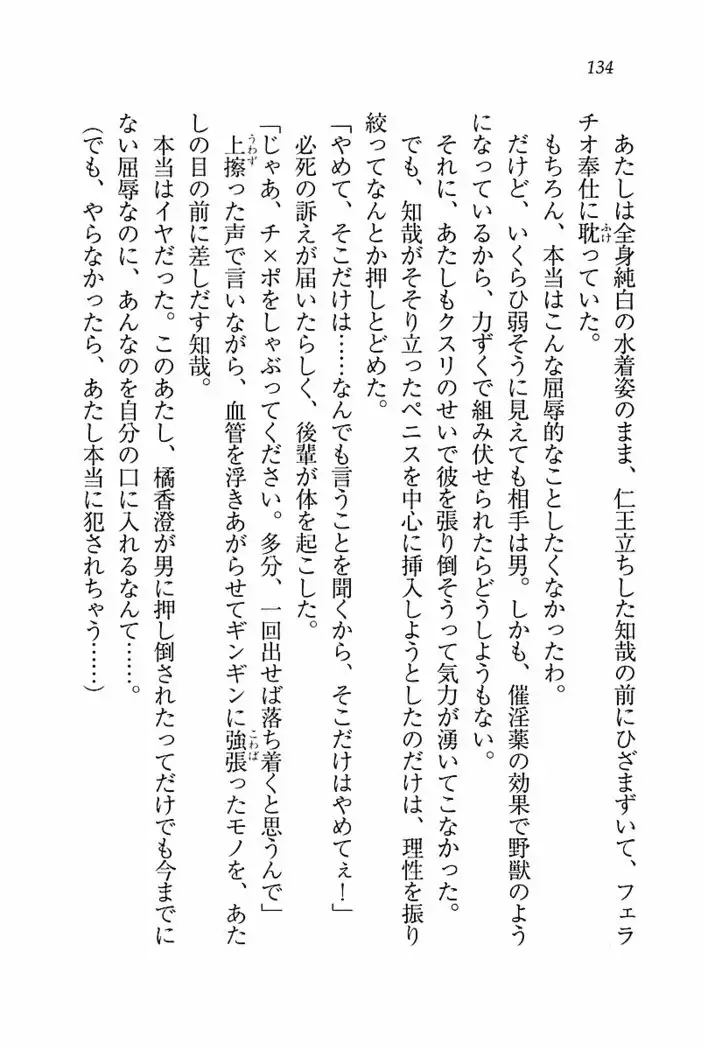 134
あたしは全身純白の水着姿のまま、仁王立ちした知哉の前にひざまずいて、フェラ
チオ奉仕に耽っていた。
もちろん、本当はこんな屈辱的なことしたくなかったわ。
だけど、いくらひ弱そうに見えても相手は男。しかも、催淫薬の効果で野獣のよう
になっているから、力ずくで組み伏せられたらどうしようもない。
それに、あたしもクスリのせいで彼を張り倒そうって気力が湧いてこなかった。
でも、知哉がそそり立ったペニスを中心に挿入しようとしたのだけは、理性を振り
絞ってなんとか押しとどめた。
「やめて、そこだけは……なんでも言うことを聞くから、そこだけはやめてぇ！」
必死の訴えが届いたらしく、後輩が体を起こした。
「じゃあ、チ×ポをしゃぶってください。多分、一回出せば落ち着くと思うんで」
上擦った声で言いながら、血管を浮きあがらせてギンギンに強張ったモノを、あた
しの目の前に差しだす知哉。
本当はイヤだった。このあたし、橘香澄が男に押し倒されたってだけでも今までに
ない屈辱なのに、あんなのを自分の口に入れるなんて……。
（でも、やらなかったら、あたし本当に犯されちゃう……）